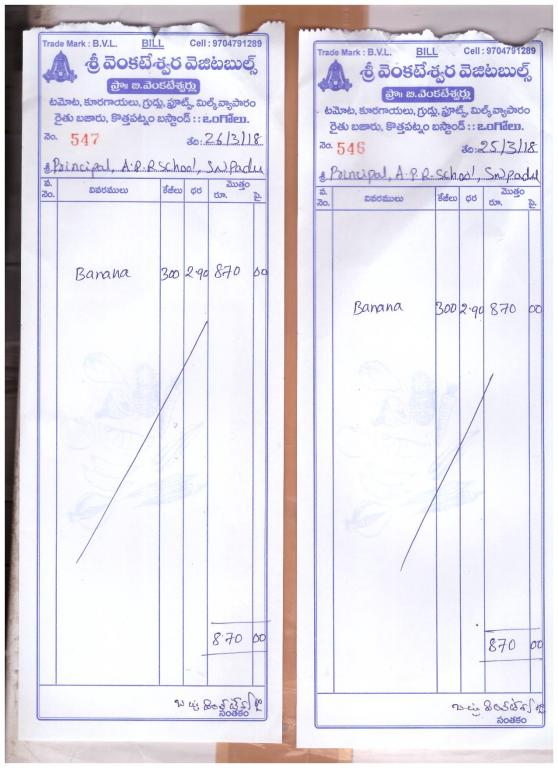 Trade Mark : B.V.L. BILL Cell : 9704791289
శ్రీ వెంకటేశ్వర వెజిటబుల్స్
ప్రొ॥ బి.వెంకటేశ్వర్లు
టమోట, కూరగాయలు, గ్రుడ్లు, ఫ్రూట్స్, మిల్క్ వ్యాపారం
రైతు బజారు, కొత్తపట్నం బస్టాండ్ : : ఒంగోలు.
నెం. 547 తేది: 26/3/18
శ్రీ Principal, A.P.R School, S.N Padu
వ. నెం. వివరములు కేజీలు ధర మొత్తం రూ. పై.
Banana 300 2.90 870 00
870 00
సంతకం
Trade Mark : B.V.L. BILL Cell : 9704791289
శ్రీ వెంకటేశ్వర వెజిటబుల్స్
ప్రొ॥ బి.వెంకటేశ్వర్లు
టమోట, కూరగాయలు, గ్రుడ్లు, ఫ్రూట్స్, మిల్క్ వ్యాపారం
రైతు బజారు, కొత్తపట్నం బస్టాండ్ : : ఒంగోలు.
నెం. 546 తేది: 25/3/18
శ్రీ Principal, A.P.R. School, S.N Padu
వ. నెం. వివరములు కేజీలు ధర మొత్తం రూ. పై.
Banana 300 2.90 870 00
870 00
సంతకం